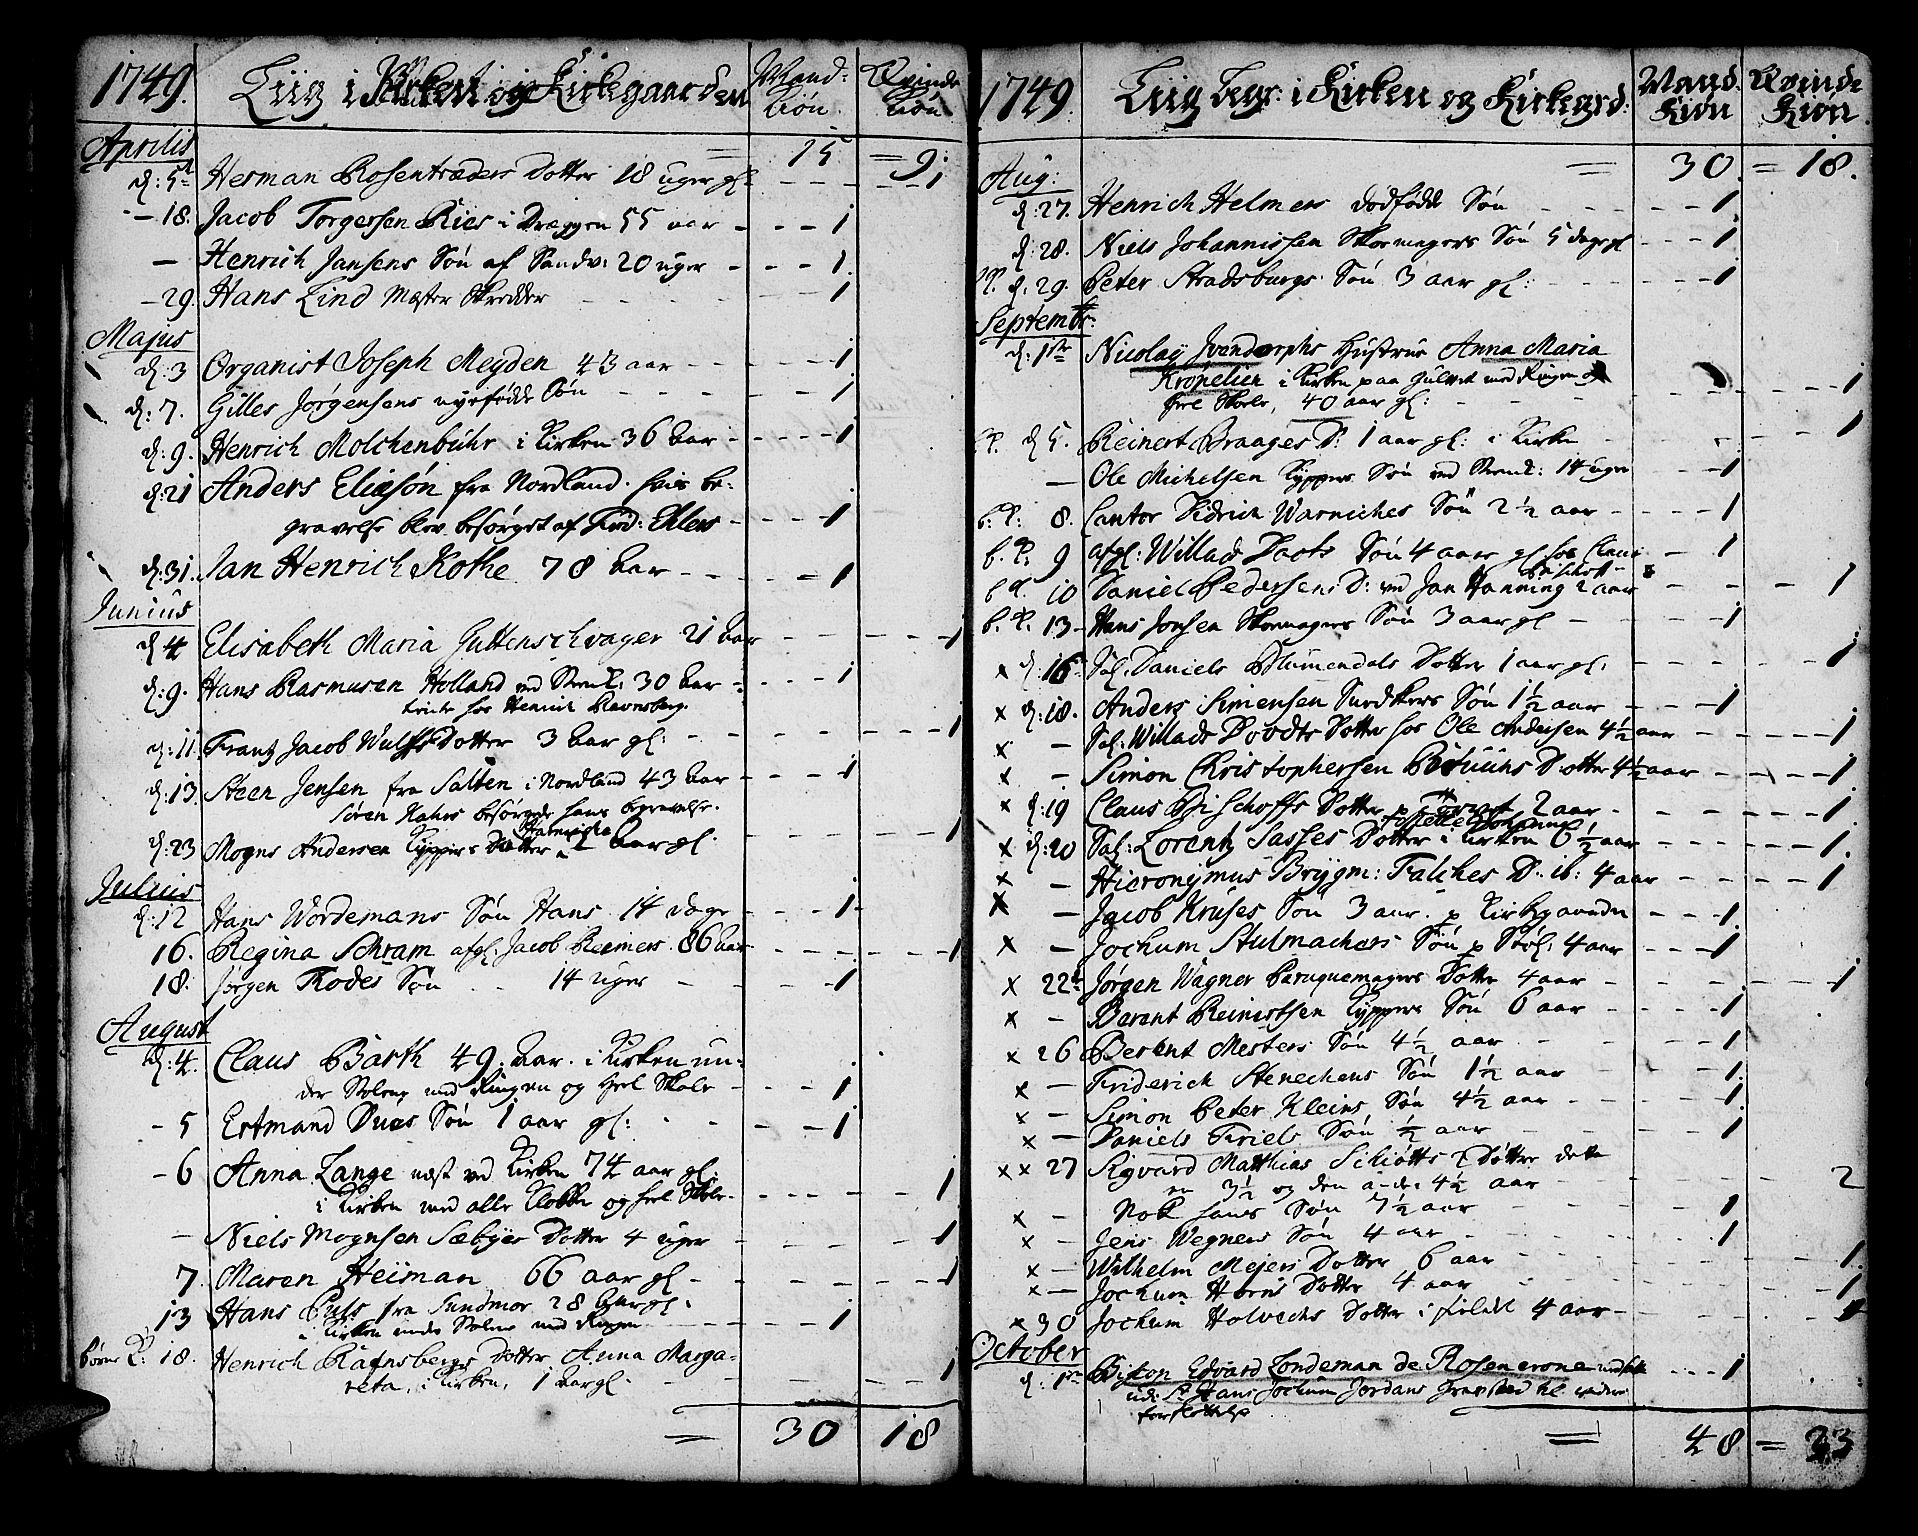 1749. Liig i Kirken og Kirkegaarden Mand- kiøn. Qvinde kiøn
Aprilis = 15 = 9.
d: 5t Herman Rosentræders Dotter 18 uger gl: 1
- 18. Jacob Torgersen Ries i Dræggen 55 aar 1
— Henrich Jansens Søn af Sandv: 20 uger 1.
- 29. Hans Lind Mæster Skredder 1
Majus
d: 3 Organist Joseph Meyden 43 aar 1
d: 7. Gilles Jørgensens nyefødde Søn 1
d: 9. Henrich Molchenbuhr i Kirken 36 aar 1
d: 21 Anders Eliesøn fra Nordland. hvis be-
gravelse blev besørget af Frid: Ehlers 1
d: 31. Jan Henrich Kothe 78 aar 1
Junius
d 4 Elisabeth Maria Guttenschvager 21 aar 1
d: 9. Hans Rasmusen Holland ved 30 aar 1
hos Henrich Ravnsberg.
d: 11. Frantz Jacob Wulffs Dotter 3 aar gl: 1
d: 13 Steen Jensen fra Salten i Nordland 43 aar 1
Søren besørgede hans begravelse.
d: 23 Mogns Andersen Kyppers Dotter aar gl. 1
Julius
d: 12 Hans Wordemans Søn Hans 14 dage 1
16. Regina Schram afgl: Jacob Reimers 86 aar 1
18. Jørgen Rodes Søn 14 uger 1
August
d: 4. Claus Barth 49. aar. i Kirken un-
der Stolene med Ringen og heel Skole 1
- 5 Ertmand Dues Søn 1 aar gl: 1
- 6 Anna Lange næst ved Kirken 74 aar gl:
i Kirken med alle Klokker og heel Skole 1
- Niels Mognsen Sæbyes Dotter 4 uger 1
7. Maren Heiman 66 aar gl 1
13 Hans Puls fra Sundmor 28 aar gl:
i Kirken under Stolene med Ringen 1
18. Henrich Rafnsbergs Dotter Anna Marga-
reta, i Kirken, 1 aar gl: 1
= 30 18
1749. Liig Begr: i Kirken og Kirkegrd: Mand Kiøn Qvinde Kiøn.
Aug: = 30. = 18.
d: 27. Henrich Helmers dødfødde Søn 1
d: 28. Niels Johannissen Skomagers Søn 5 dage gl 1
d: 29. Peter Stradsburgs Søn 3 aar gl: 1
Septembr:
d: 1ste Nicolay Jvendorphs Hustrue Anna Maria
Kronelien i Kirken paa Gulvet med Ringen og
heel Skole, 40 aar gl: 1
d 5. Reinert Braages D: 1 aar gl: i Kirken 1
— Ole Michelsen Kyppers Søn ved 14 uger 1
8. Cantor Didrich Warniches Søn 2 ½ aar 1
9 afgl: Willads Søn 4 aar gl hos Claus
Bischoff 1
10 Daniel Pedersens D: ved Jan Hanning 2 aar 1
13 - Hans Jonsen Skomagers Søn 3 aar gl 1
x d: 16 Sal. Daniels Blumendals Dotter 1 aar gl. 1
x d: 18. Anders Simensen Søn 1½ aar 1
x — Sal: Willads Dotter hos Ole Andersen 4½ aar 1
x — Simon Christophersen Dotter 4½ aar 1
x d: 19 Claus Bischoffs Dotter 2 aar 1
x d: 20 Sal: Lorentz Sasses Dotter i Kirken 6½ aar 1.
x — Hieronymus Brygm: Falches D. ib: 4 aar 1
x — Jacob Kruses Søn 3 aar. p Kirkegaarden 1
x — Jochum Stulmachers Søn p 4 aar 1
x 22 Jørgen Wagner Peruquemagers Dotter 4 aar 1
x — Berent Reinertsen Kyppers Søn 6 aar 1
x 26 Berent Mesters Søn 4½ aar 1
x — Friderich Stenechens Søn 1½ aar 1
x — Simon Peter Kleins Søn 4½ aar 1
x — Daniels Friels Søn ½ aar 1
xx 27 Sigvard Matthias Schiøtts 2 Døttre dette
en 3½ og den ande: 4½ aar 2
x — Nok hans Søn 7½ aar 1
x — Jens Wegners Søn 4 aar 1
x — Wilhelm Mejers Dotter 6 aar 1.
x — Jochum Horns Dotter 4 aar 1
x 30 Jochum Holvechs Dotter 4 aar 1
October
d: 1ste Biskop Edvard Londeman de Rosencrone 1
udi Sl: Hans Jochum Jordans til
= 48 = 33